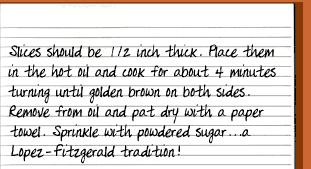 Slices should be 1/2 inch thick. Place them
in the hot oil and cook for about 4 minutes
turning until golden brown on both sides.
Remove from oil and pat dry with a paper
towel. Sprinkle with powdered sugar...a
Lopez-Fitzgerald tradition!